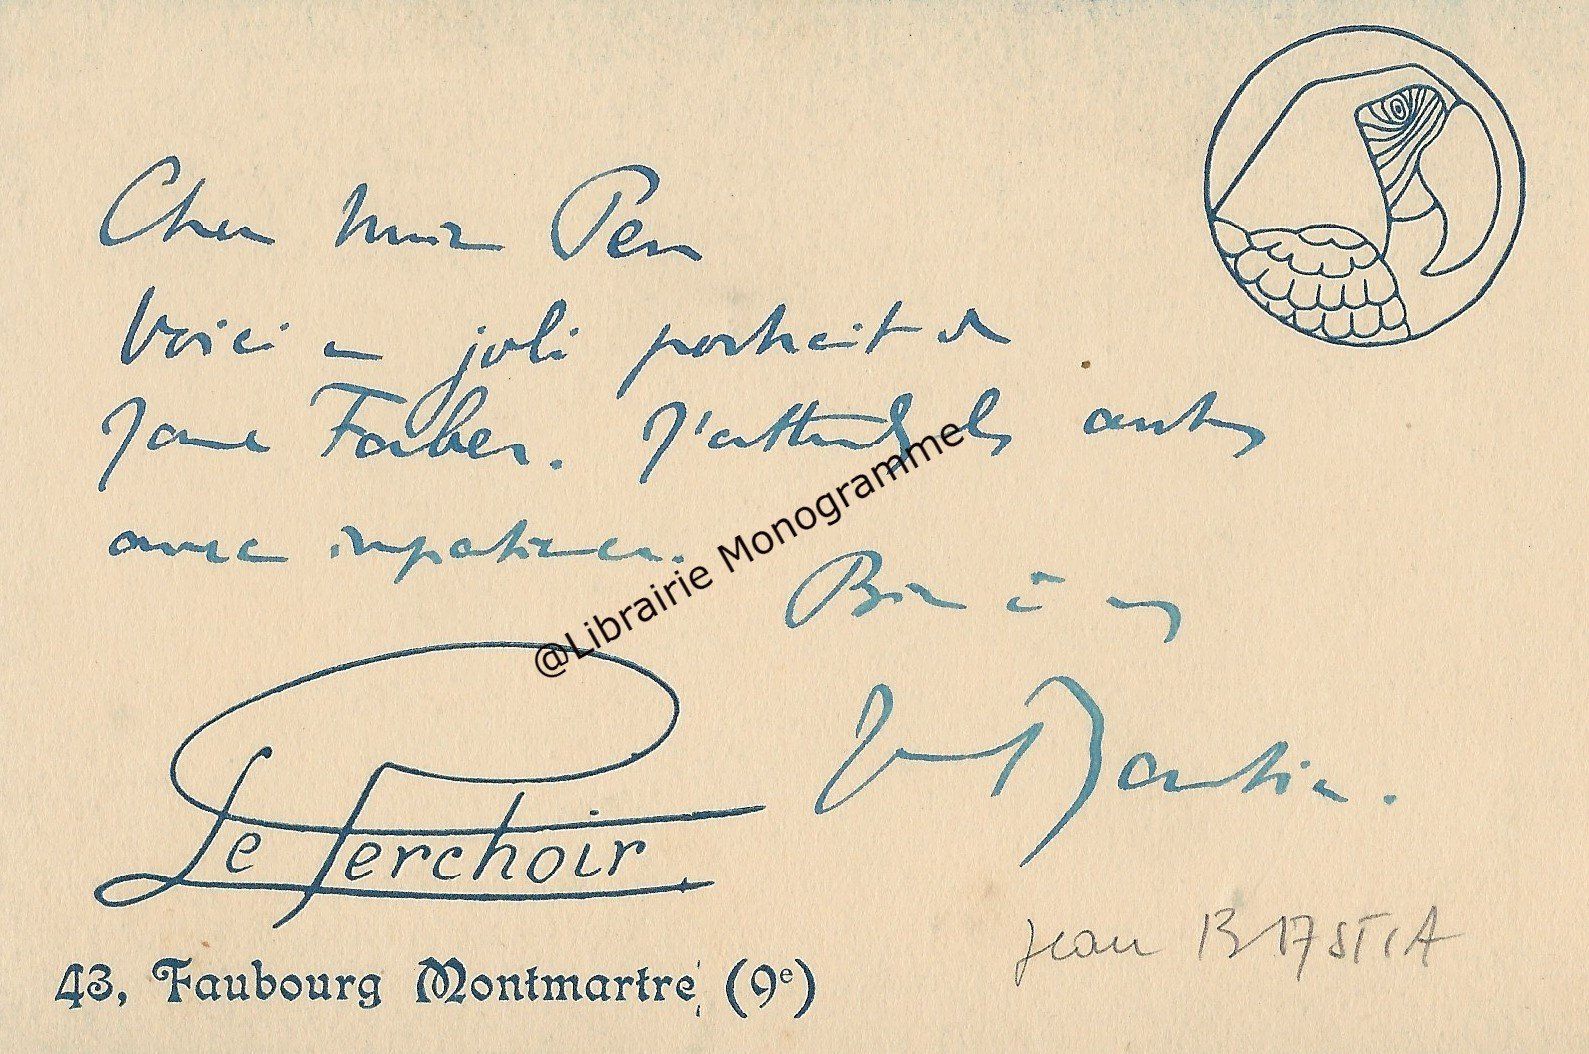 Cher
Voici un joli portrait de
Jane Faber. J'attends les autres
avec impatience.
Bien à vous
Jean Bastia.
@Librairie Monogramme
Le Perchoir.
43, Faubourg Montmartre (9e)
Jean BASTIA